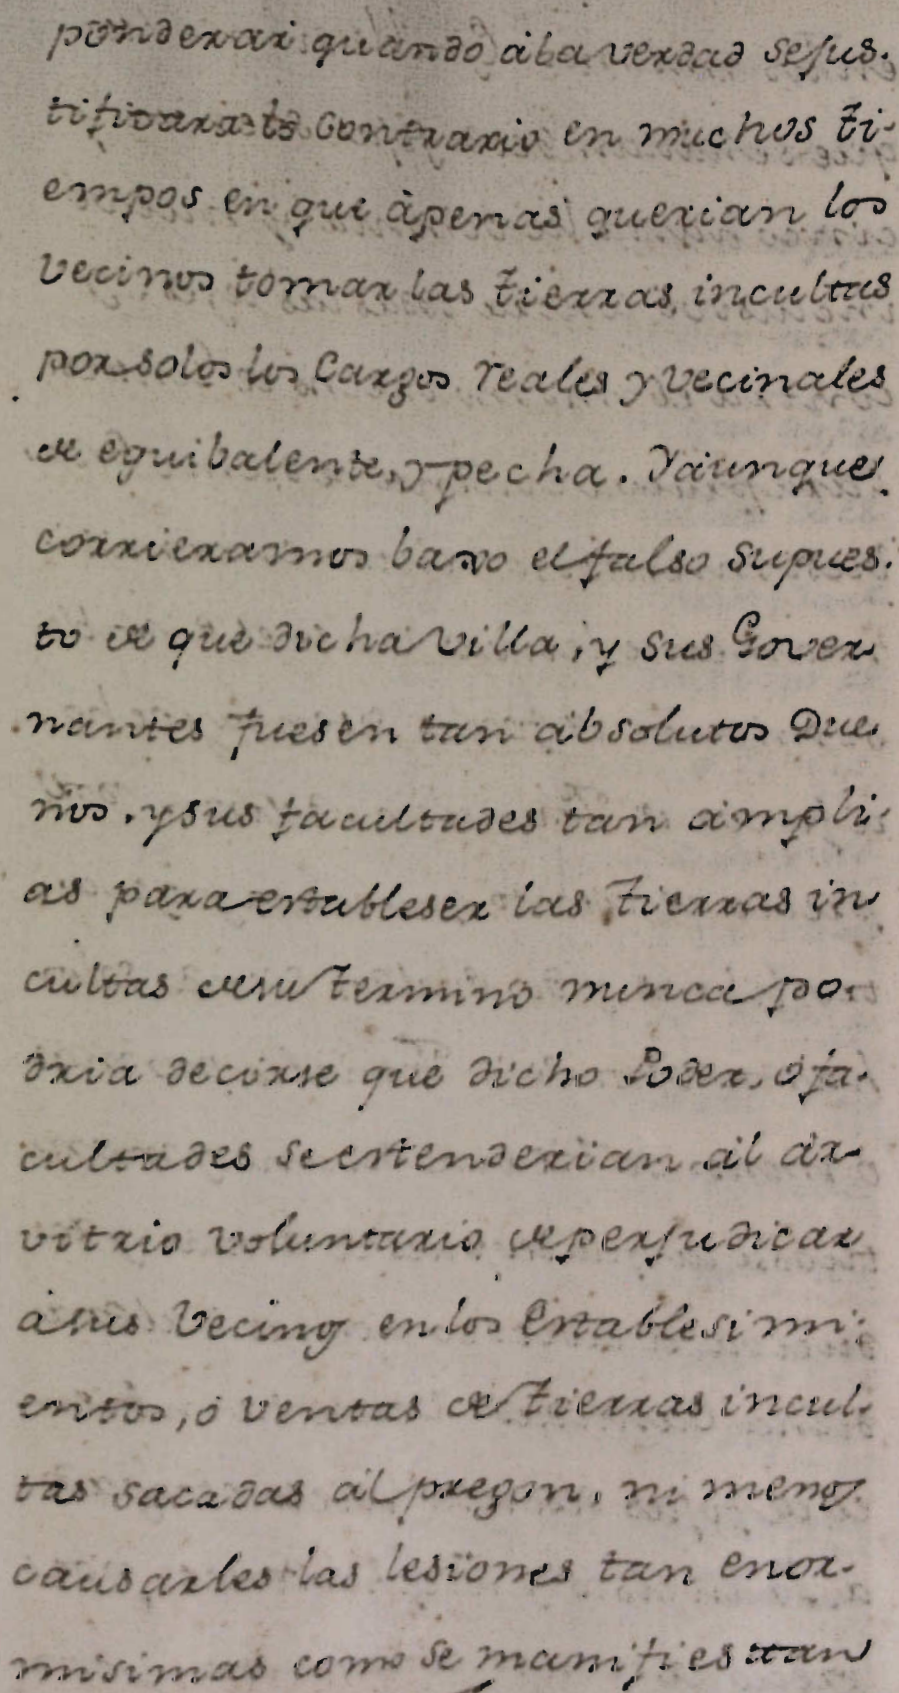 ponderar quando àla verdad sejus.
tificara lo Contrario en muchos ti-
empos en que àpenas querian los
Vecinos tomar las tierras incultas
por solos los Cargos reales y Vecinales
de equibalente, y pecha. Yàunque
corrieramos baxo el falso supues.
to de que dicha Villa, y sus Gover
nantes fuesen tan àbsolutos Due
ños, y sus facultades tan àmpli-
as para estableser las tierras in
cultas desu termino nunca po-
dria decirse que dicho Poder, ò fa-
cultades se estenderian àl àr-
vitrio voluntario de perjudicar
àsus Vecinos en los Establesimi-
entos, ò Ventas de tierras incul-
tas sacadas àl pregon, ni menos
causarles las lesiones tan enor-
misimas como se manifiestan